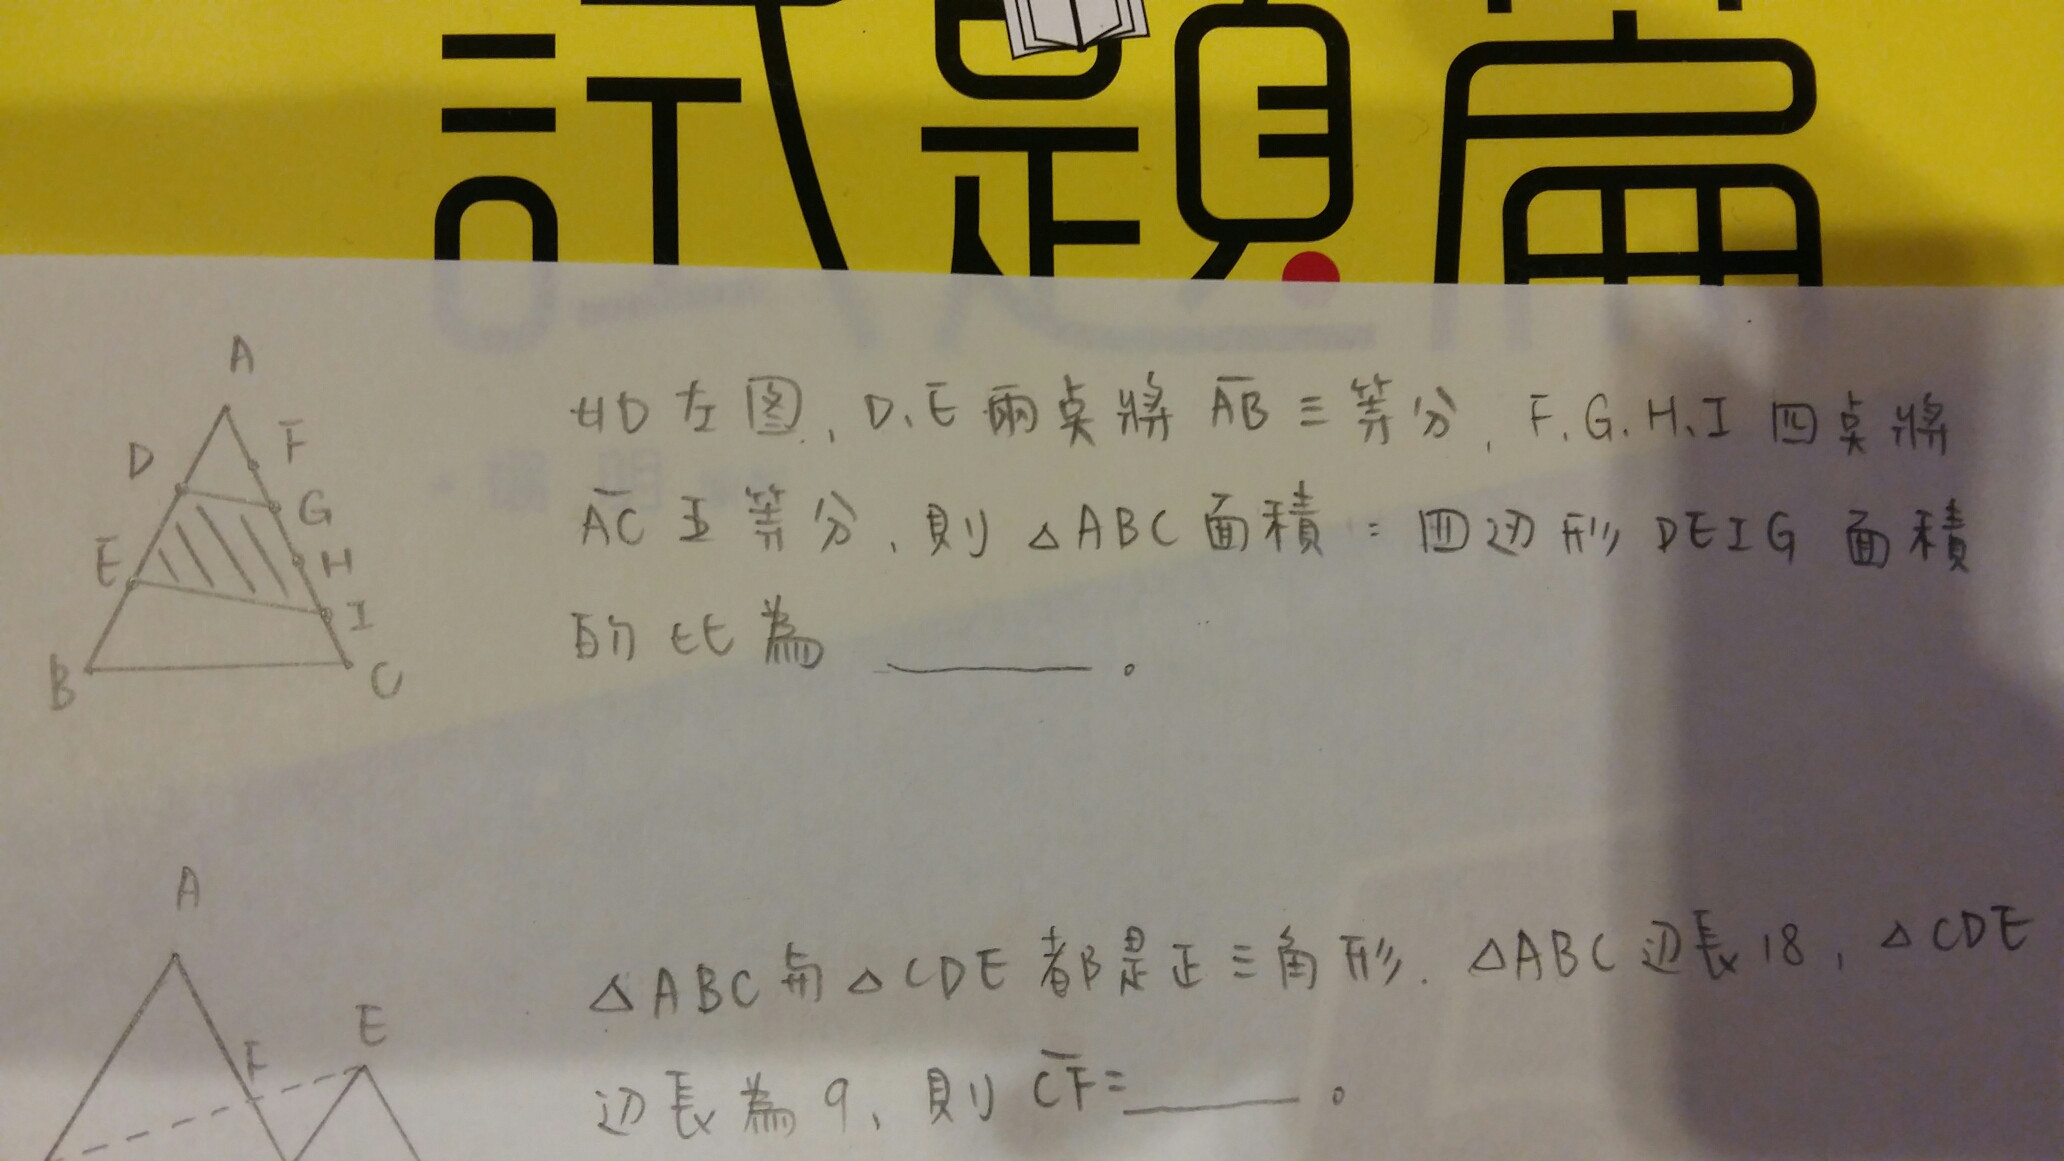 試題篇
A
D
F
G
E
H
I
B
C
如左图, D、E兩点將 AB 三等分, F、G、H、I 四点將
AC 五等分, 則 △ABC 面積 : 四边形 DEIG 面積
的比為 ______。
A
E
F
△ABC 與 △CDE 都是正三角形. △ABC 边長 18, △CDE
边長為 9, 則 CF=______。